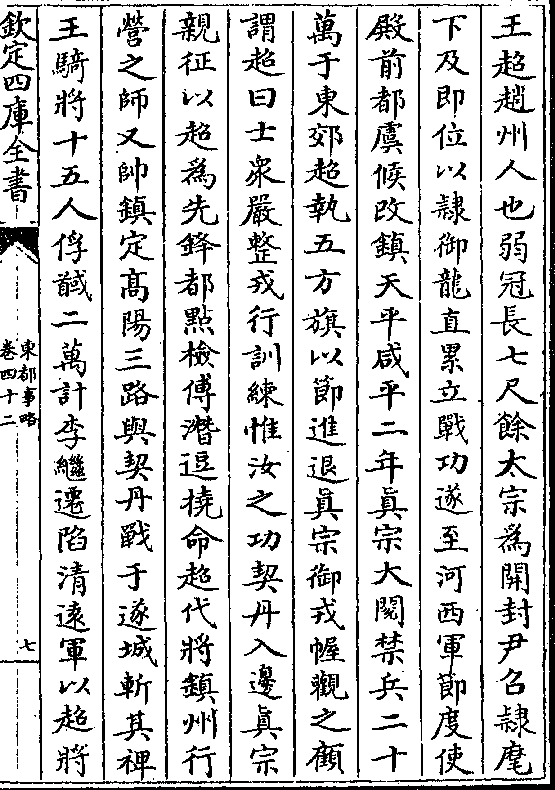 王超趙州人也弱冠長七尺餘太宗爲開封尹召隷麾
下及即位以隷御龍直累立戰功遂至河西軍節度使
殿前都虞候改鎮天平咸平二年真宗大閱禁兵二十
萬于東郊超執五方旗以節進退真宗御戎幄觀之顧
謂超曰士衆嚴整戎行訓練惟汝之功契丹入邊真宗
親征以超爲先鋒都點檢傅潛逗撓命超代將鎮州行
營之師又帥鎮定高陽三路與契丹戰于遂城斬其裨
王騎將十五人俘馘二萬計李繼遷陷清遠軍以超將
欽定四庫全書
東都事略
卷四十二
七